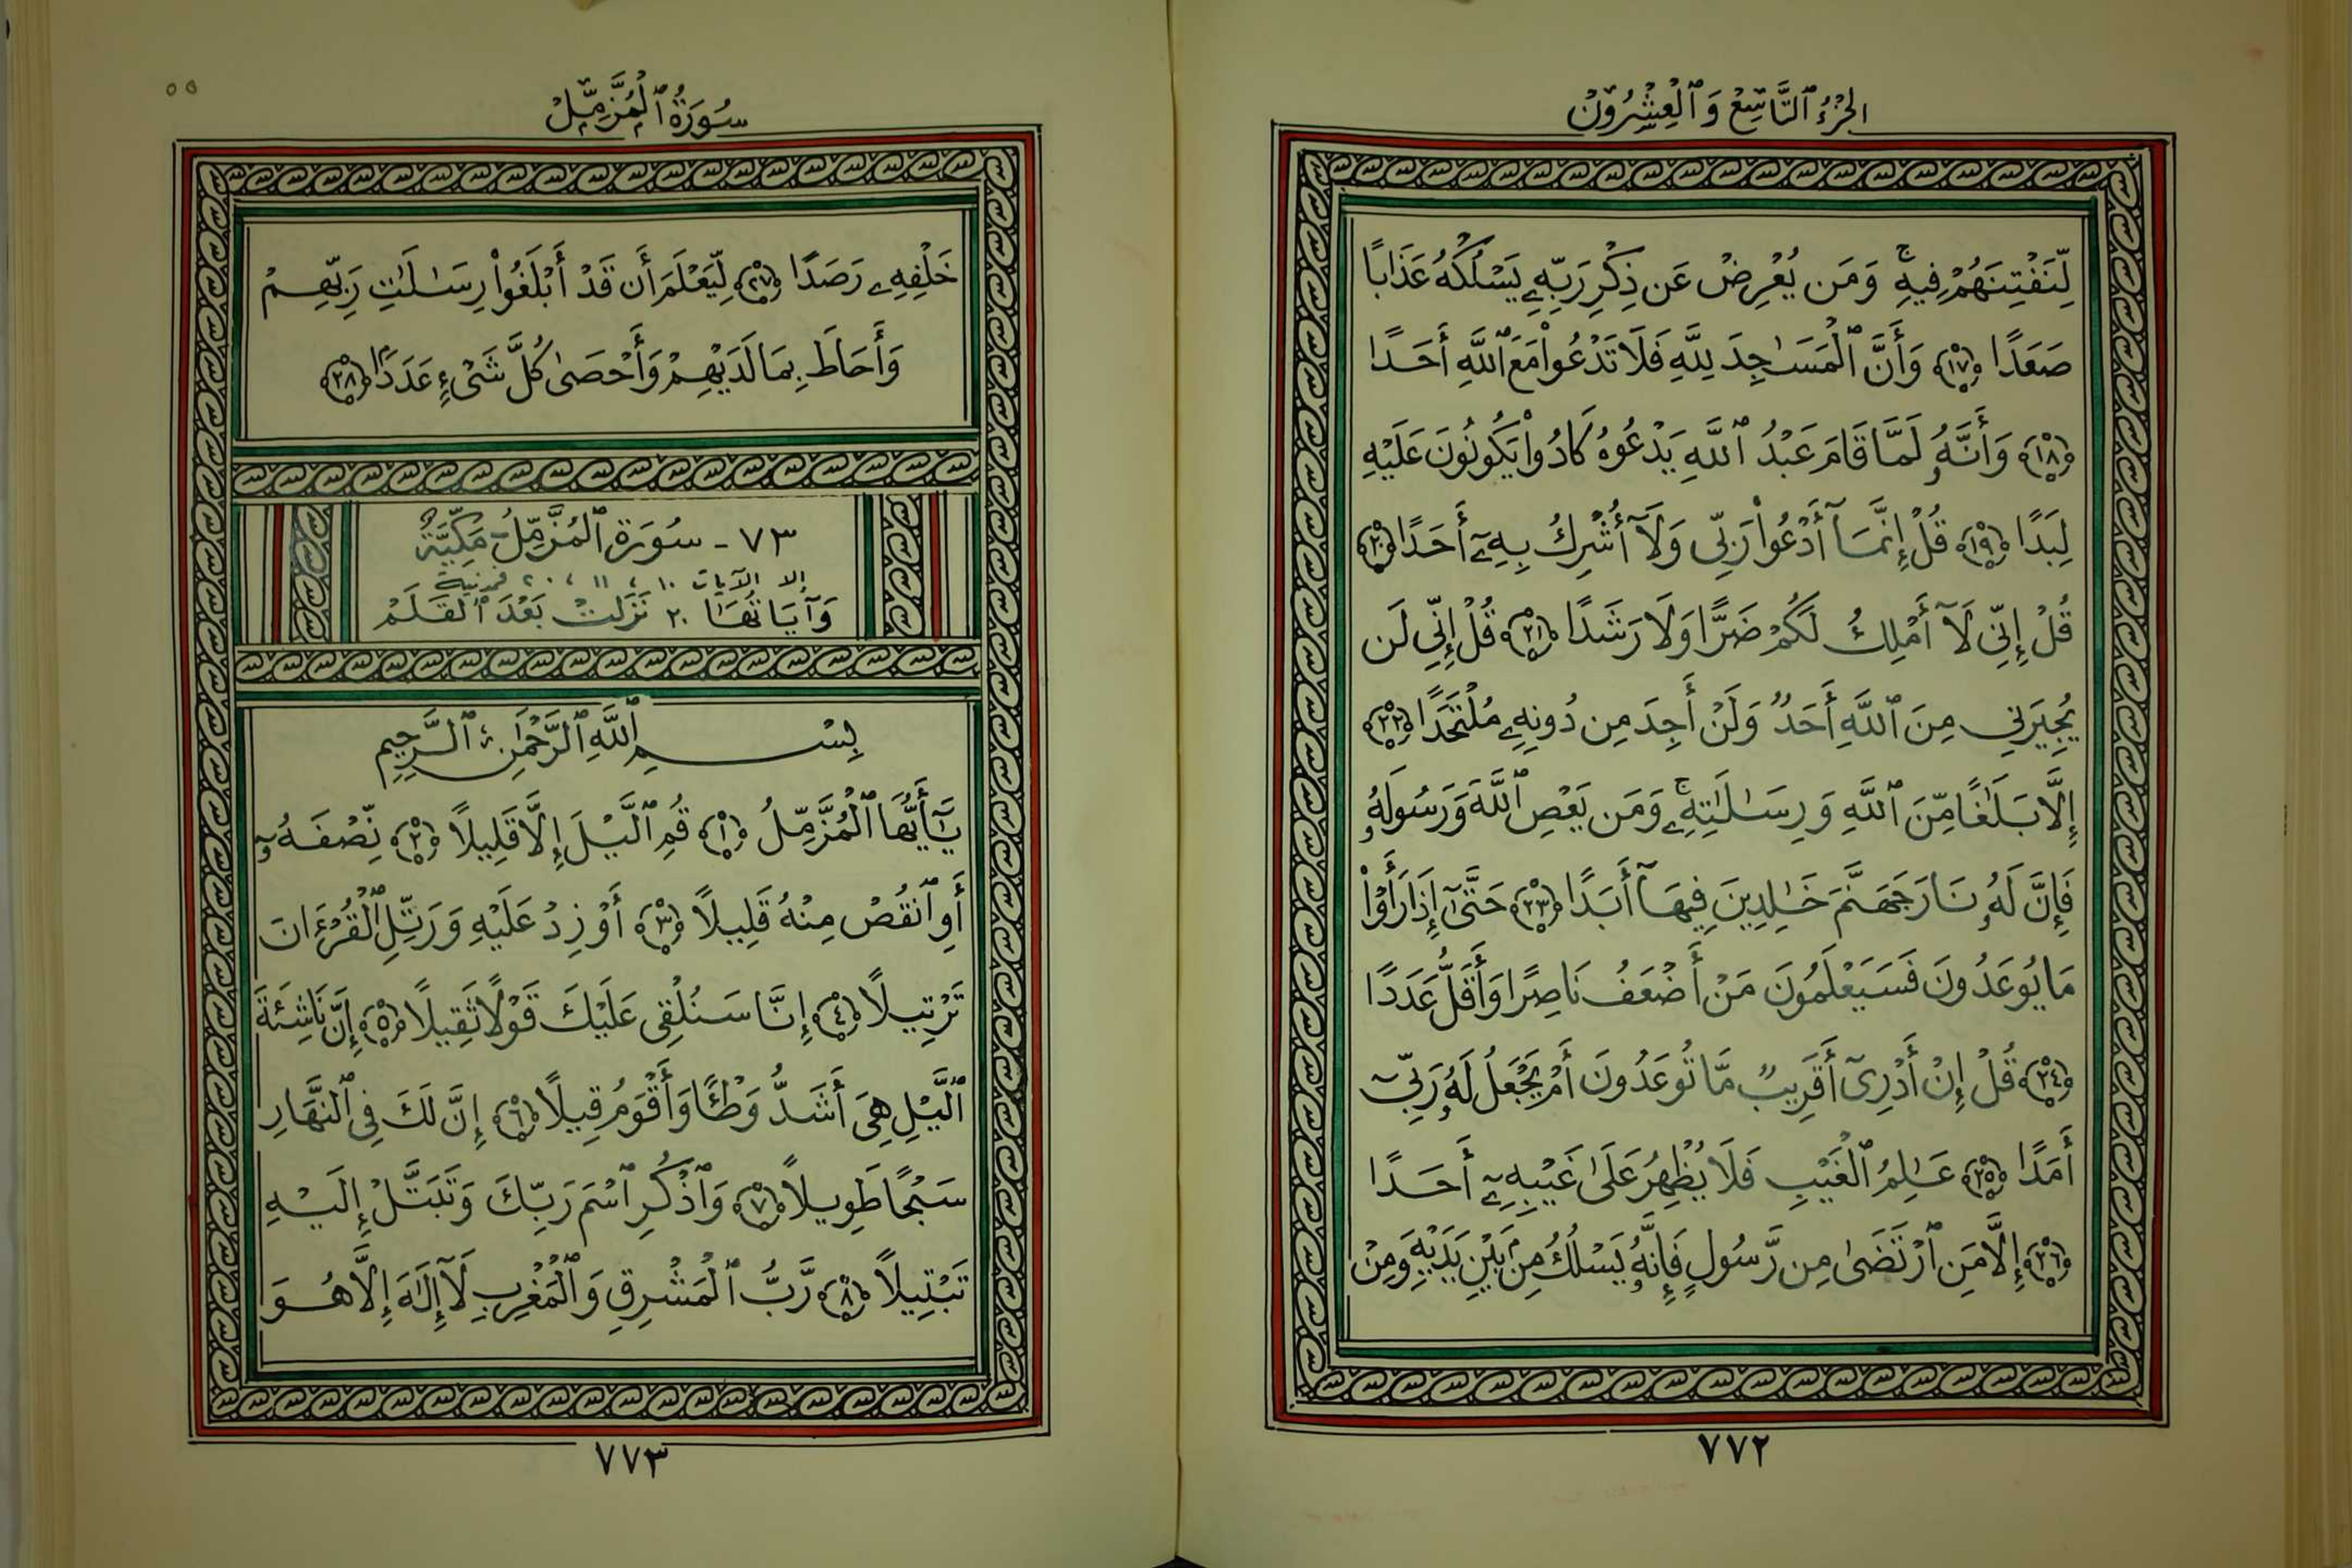 الجزء ٱلتَّاسِع وَٱلْعِشْرُون
لِّنَفْتِنَهُمْ فِيهِ ۚ وَمَن يُعْرِضْ عَن ذِكْرِ رَبِّهِۦ يَسْلُكْهُ عَذَابًا
صَعَدًا ١٧ وَأَنَّ ٱلْمَسَٰجِدَ لِلَّهِ فَلَا تَدْعُوا۟ مَعَ ٱللَّهِ أَحَدًا
١٨ وَأَنَّهُۥ لَمَّا قَامَ عَبْدُ ٱللَّهِ يَدْعُوهُ كَادُوا۟ يَكُونُونَ عَلَيْهِ
لِبَدًا ١٩ قُلْ إِنَّمَآ أَدْعُوا۟ رَبِّى وَلَآ أُشْرِكُ بِهِۦٓ أَحَدًا ٢٠
قُلْ إِنِّى لَآ أَمْلِكُ لَكُمْ ضَرًّا وَلَا رَشَدًا ٢١ قُلْ إِنِّى لَن
يُجِيرَنِى مِنَ ٱللَّهِ أَحَدٌ وَلَنْ أَجِدَ مِن دُونِهِۦ مُلْتَحَدًا ٢٢
إِلَّا بَلَٰغًا مِّنَ ٱللَّهِ وَرِسَٰلَٰتِهِۦ ۚ وَمَن يَعْصِ ٱللَّهَ وَرَسُولَهُۥ
فَإِنَّ لَهُۥ نَارَ جَهَنَّمَ خَٰلِدِينَ فِيهَآ أَبَدًا ٢٣ حَتَّىٰٓ إِذَا رَأَوْا۟
مَا يُوعَدُونَ فَسَيَعْلَمُونَ مَنْ أَضْعَفُ نَاصِرًا وَأَقَلُّ عَدَدًا
٢٤ قُلْ إِنْ أَدْرِىٓ أَقَرِيبٌ مَّا تُوعَدُونَ أَمْ يَجْعَلُ لَهُۥ رَبِّىٓ
أَمَدًا ٢٥ عَٰلِمُ ٱلْغَيْبِ فَلَا يُظْهِرُ عَلَىٰ غَيْبِهِۦٓ أَحَدًا
٢٦ إِلَّا مَنِ ٱرْتَضَىٰ مِن رَّسُولٍ فَإِنَّهُۥ يَسْلُكُ مِنۢ بَيْنِ يَدَيْهِ وَمِنْ
٧٧٢
٥٥
سُورَةُ ٱلْمُزَّمِّلْ
خَلْفِهِۦ رَصَدًا ٢٧ لِّيَعْلَمَ أَن قَدْ أَبْلَغُوا۟ رِسَٰلَٰتِ رَبِّهِمْ
وَأَحَاطَ بِمَا لَدَيْهِمْ وَأَحْصَىٰ كُلَّ شَىْءٍ عَدَدًۢا ٢٨
٧٣ - سُورَة ٱلمُزَّمِّلُ مَكِّيَّةٌ
إلا الآيات ١٠ ، ١١ ، ٢٠ فمدنية
وَآيَاتُهَا ٢٠ نَزَلَتْ بَعْدَ ٱلقَلَمْ
بِسْمِ ٱللَّهِ ٱلرَّحْمَٰنِ ٱلرَّحِيمِ
يَٰٓأَيُّهَا ٱلْمُزَّمِّلُ ١ قُمِ ٱلَّيْلَ إِلَّا قَلِيلًا ٢ نِّصْفَهُۥٓ
أَوِ ٱنقُصْ مِنْهُ قَلِيلًا ٣ أَوْ زِدْ عَلَيْهِ وَرَتِّلِ ٱلْقُرْءَانَ
تَرْتِيلًا ٤ إِنَّا سَنُلْقِى عَلَيْكَ قَوْلًا ثَقِيلًا ٥ إِنَّ نَاشِئَةَ
ٱلَّيْلِ هِىَ أَشَدُّ وَطْـًٔا وَأَقْوَمُ قِيلًا ٦ إِنَّ لَكَ فِى ٱلنَّهَارِ
سَبْحًا طَوِيلًا ٧ وَٱذْكُرِ ٱسْمَ رَبِّكَ وَتَبَتَّلْ إِلَيْهِ
تَبْتِيلًا ٨ رَّبُّ ٱلْمَشْرِقِ وَٱلْمَغْرِبِ لَآ إِلَٰهَ إِلَّا هُوَ
٧٧٣